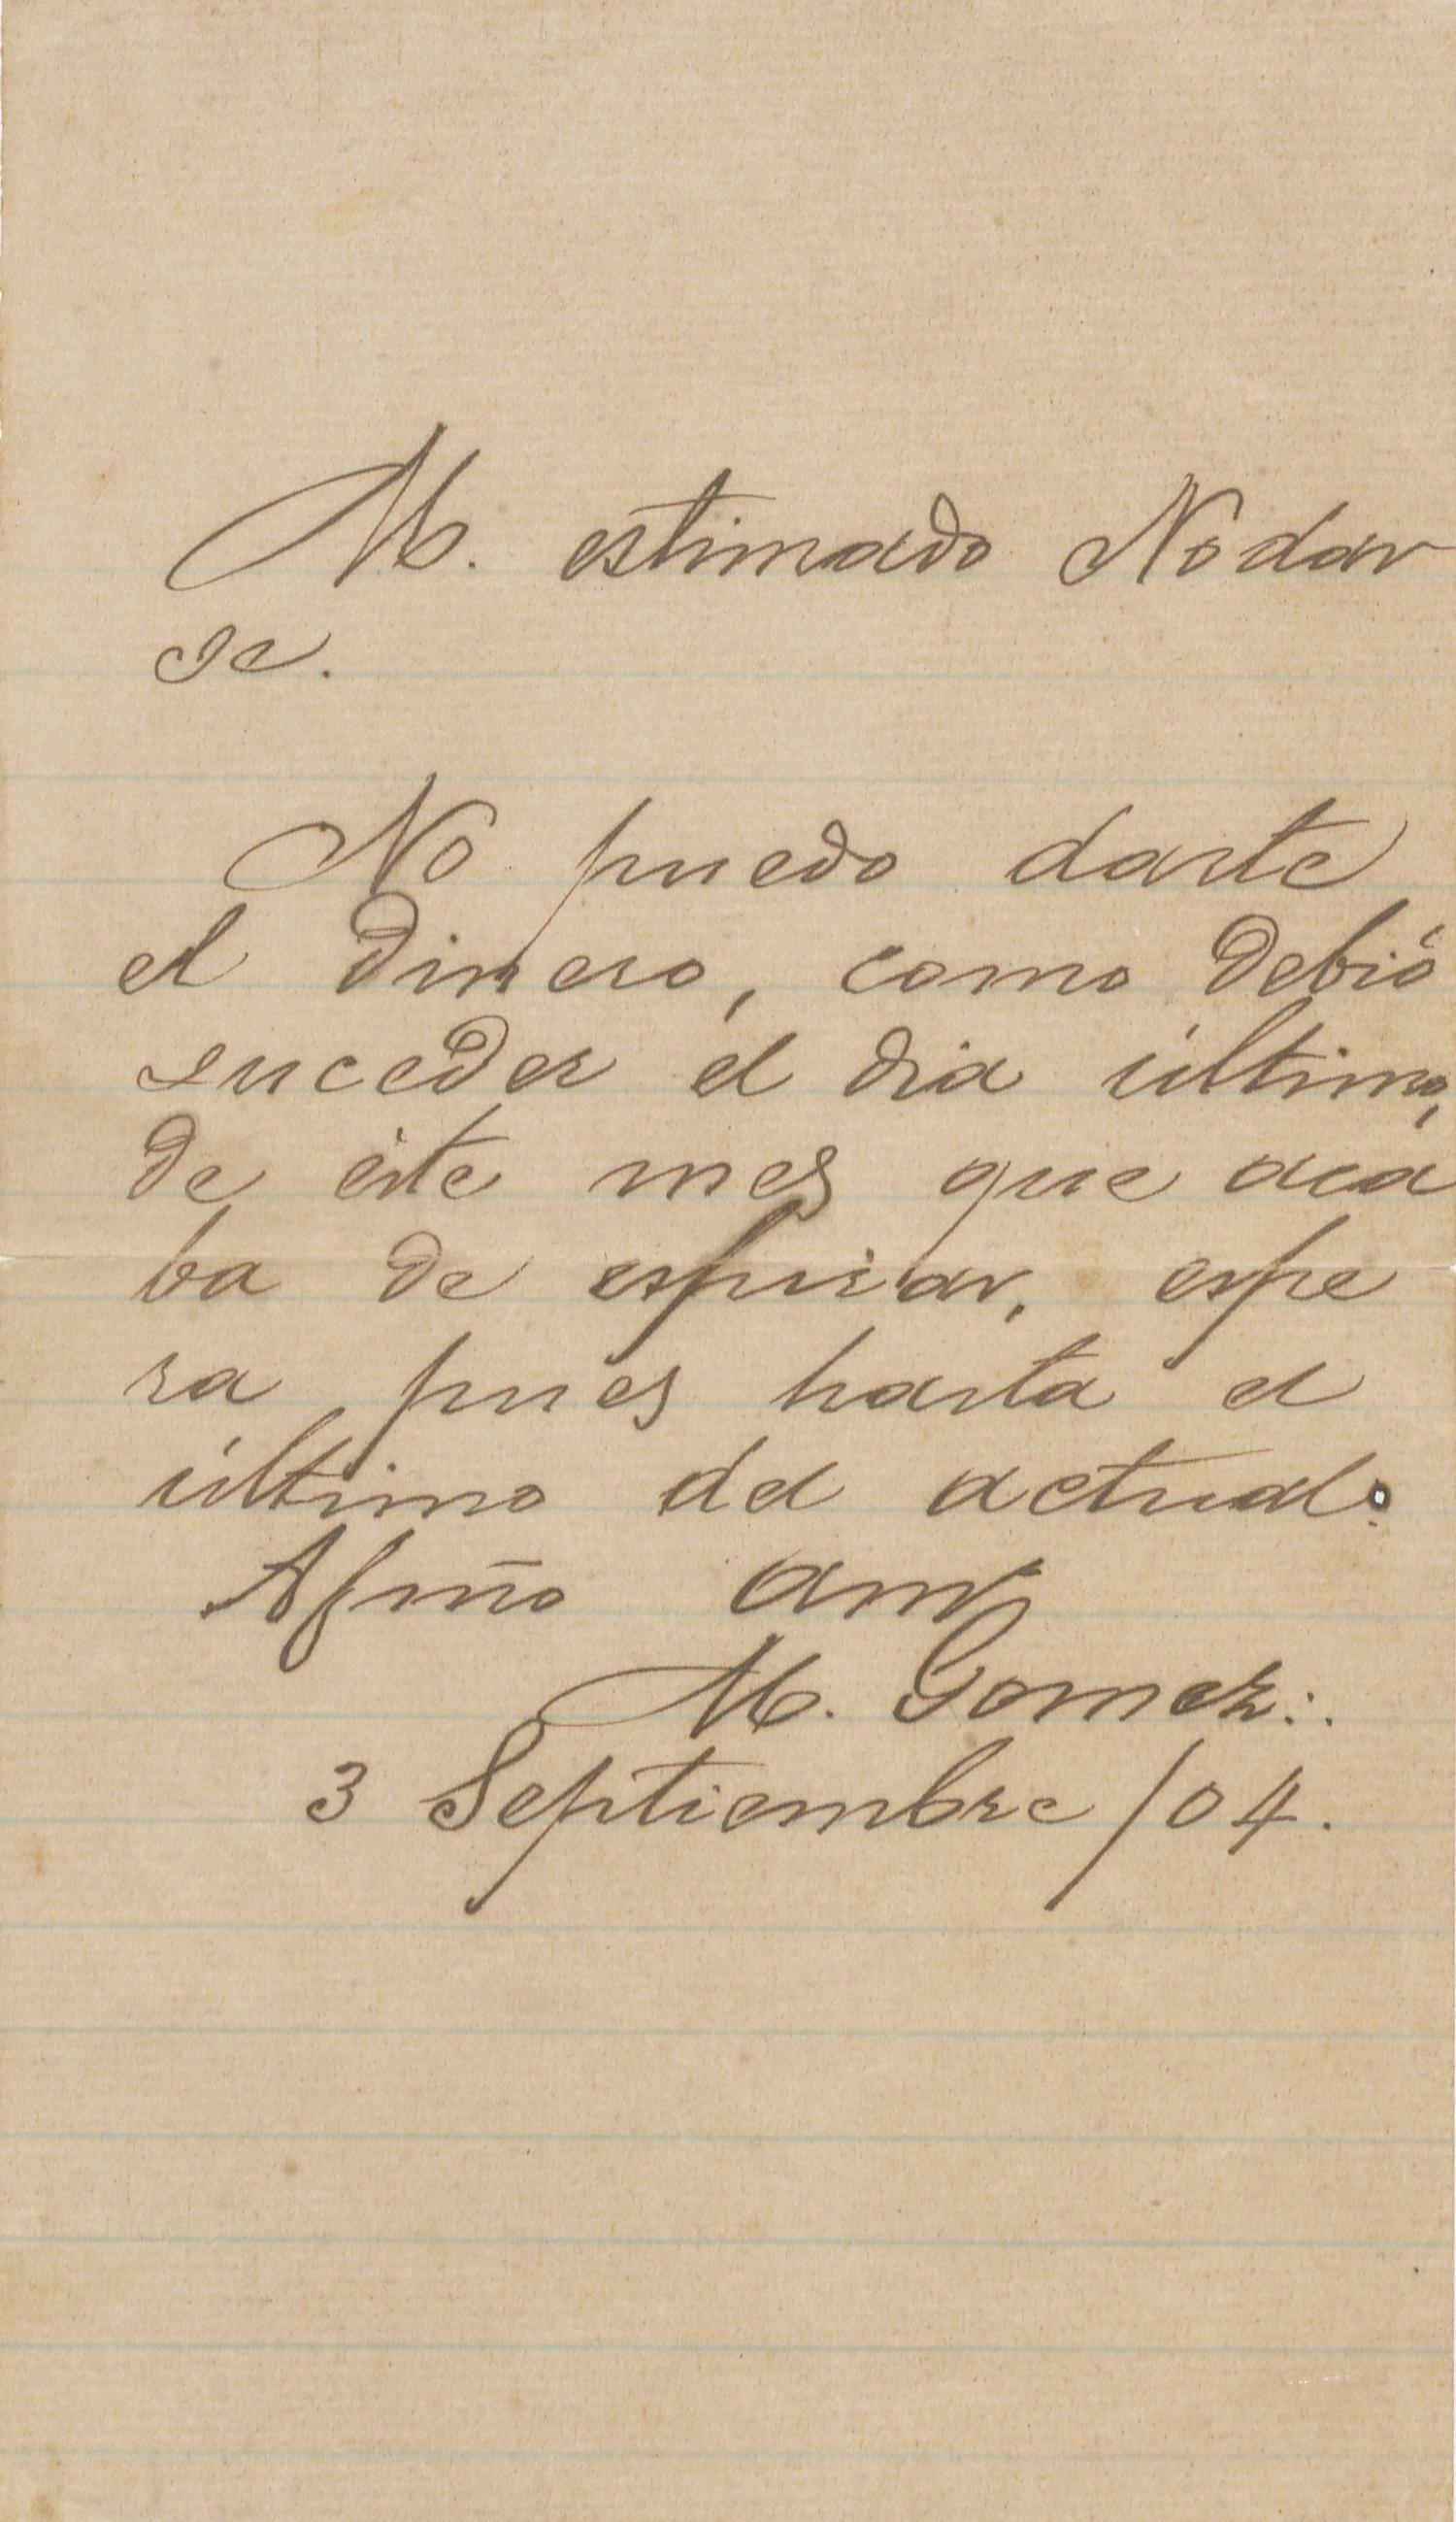 M. estimado Nodar
se.
No puedo darte
el dinero, como debió
suceder el dia último,
de éste mes que aca
ba de espirar, espe
ra pues hasta el
último del actual.
Afmo am
M. Gomez:.
3 Septiembre /04.